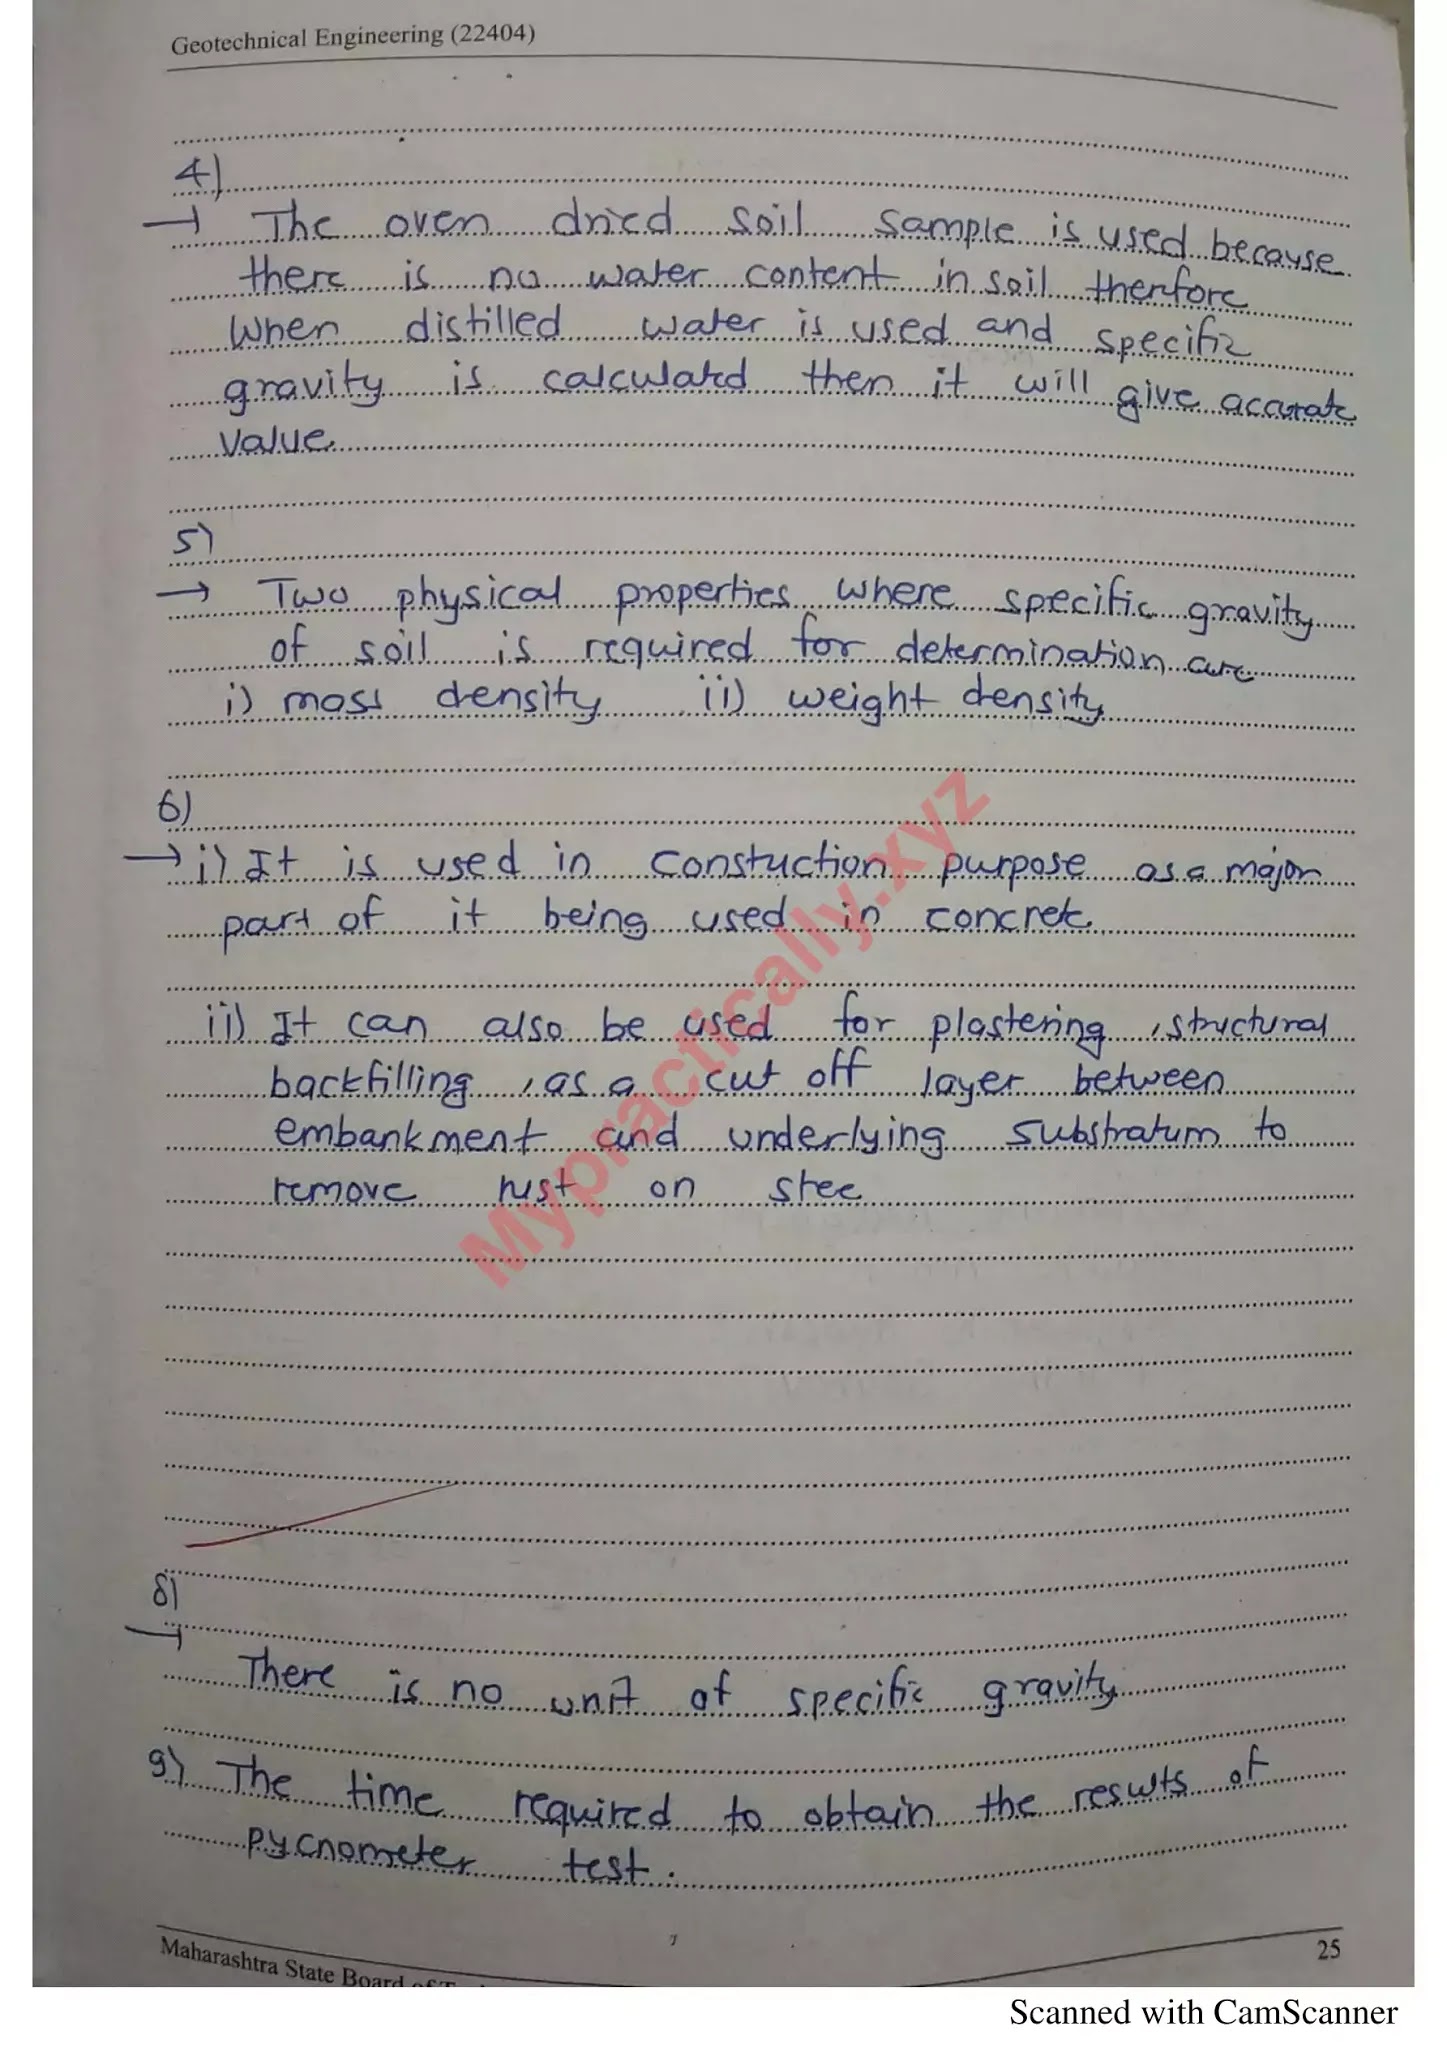 Geotechnical Engineering (22404)
4)
→ The oven dried soil sample is used because
there is no water content in soil therfore
when distilled water is used and specific
gravity is calculated then it will give accurate
value.
5)
→ Two physical properties where specific gravity
of soil is required for determination are
i) mass density ii) weight density
6)
→ i) It is used in constuction purpose as a major
part of it being used in concrete.
ii) It can also be used for plastering, structural
backfilling, as a cut off layer between
embankment and underlying substratum to
remove rust on stee
8)
→
There is no unit of specific gravity
9) The time required to obtain the results of
pycnometer test.
Mypractically.xyz
Maharashtra State Board of
25
Scanned with CamScanner